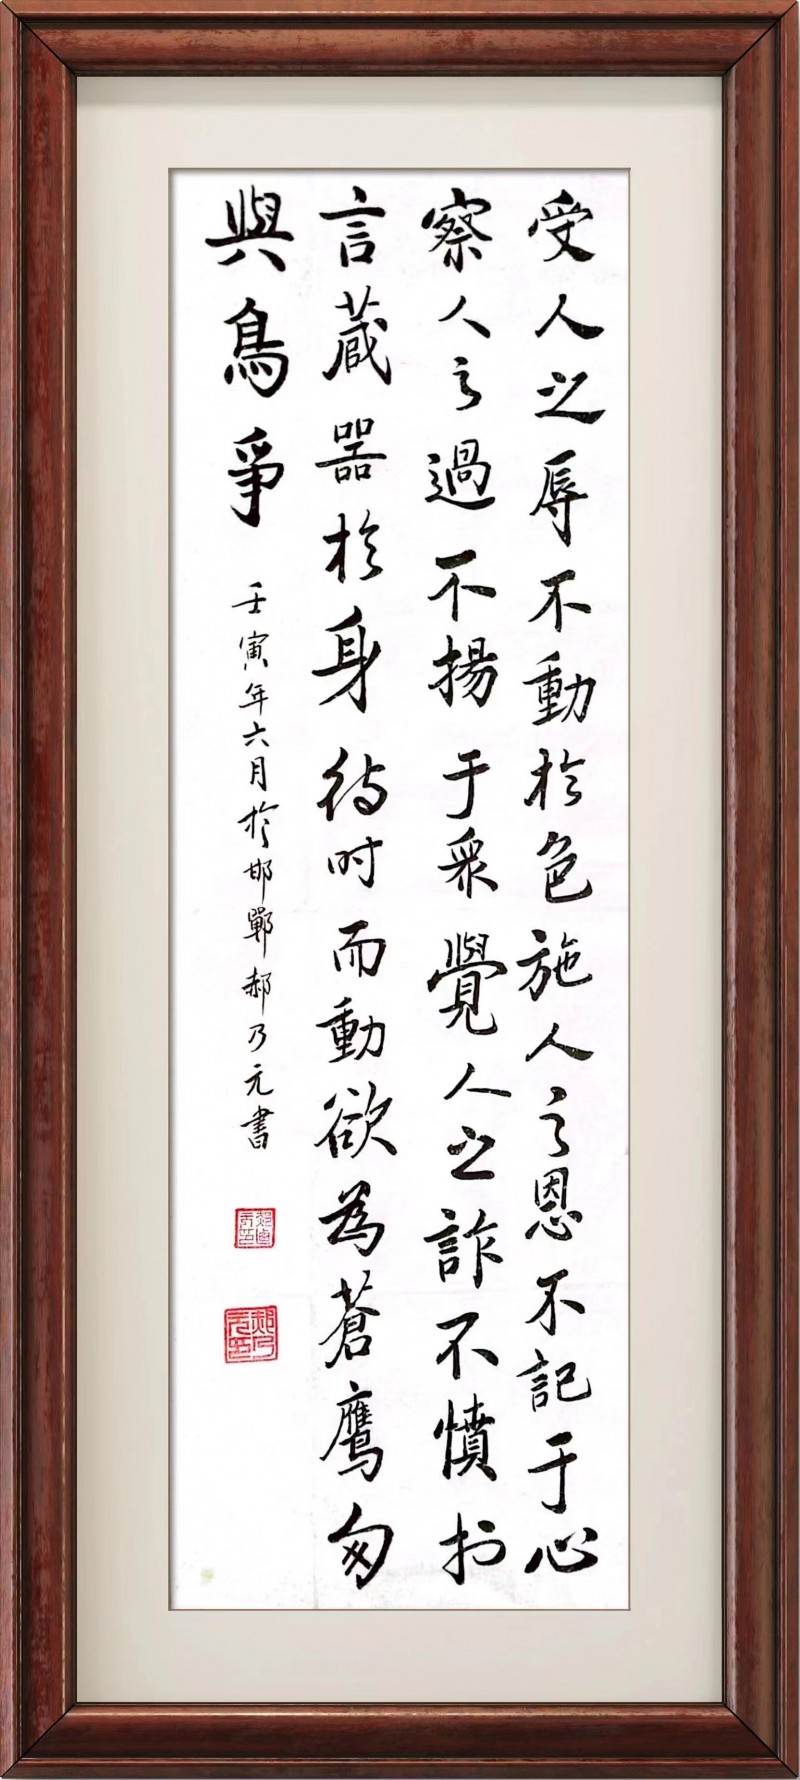 受人之辱不動於色施人之恩不記于心
察人之過不揚于衆覺人之詐不憤於
言藏器於身待时而動欲為蒼鷹勿
與鳥爭
壬寅年六月於邯鄲郝乃元書
郝乃元印